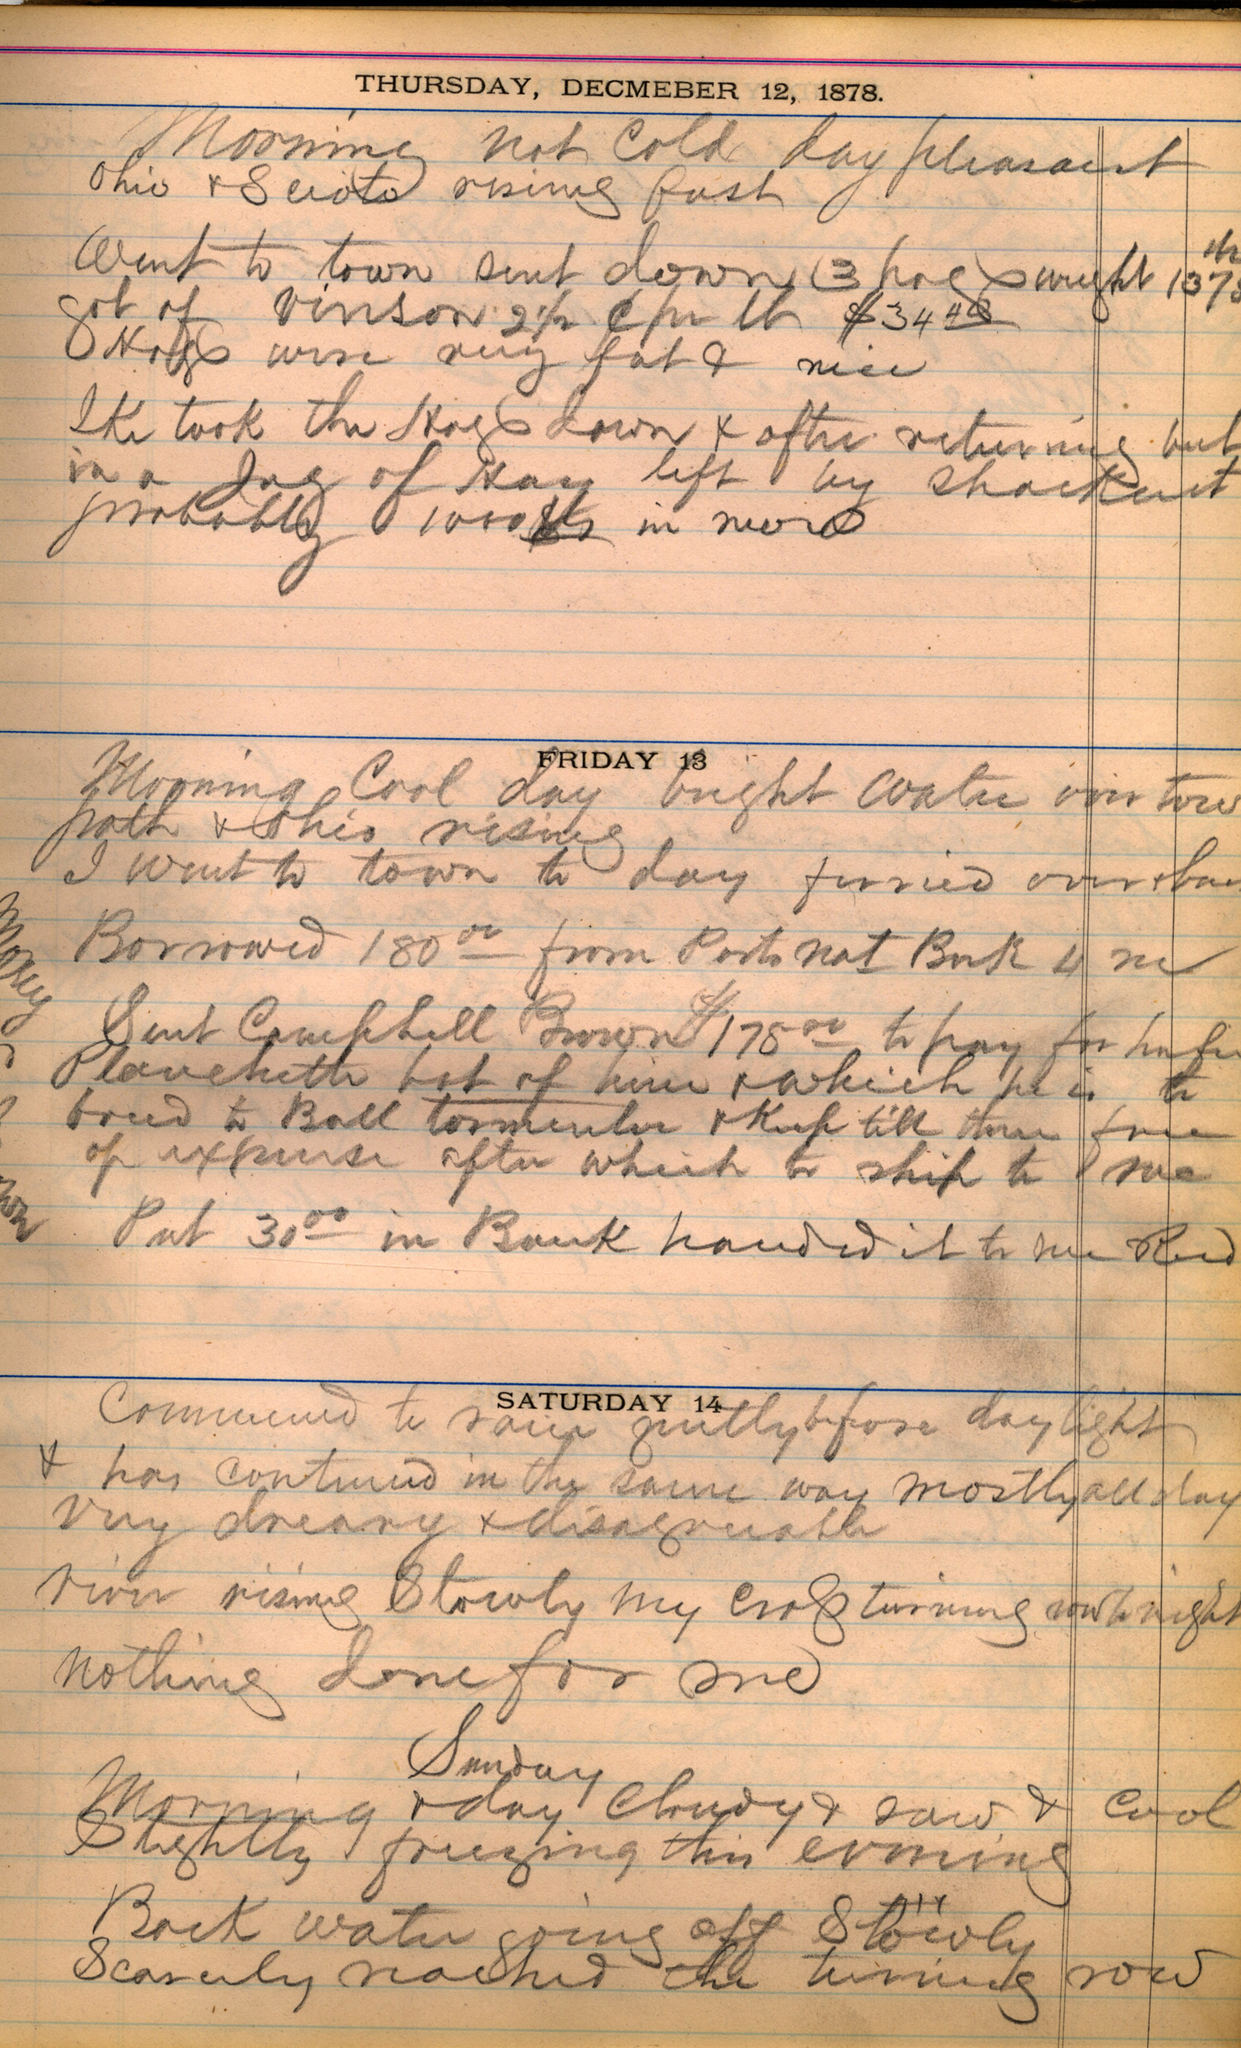 THURSDAY, DECMEBER 12, 1878.
Morning not Cold day pleasant
Ohio & Scioto rising fast
Went to town sent down 3 hogs weight 1378
got of Vinson 2½ c pr lb $34 40
Hogs were very fat & nice
Ike took the Hogs down & after returning but
in a Jag of Hay left by
probably 1000 lbs in mow
FRIDAY 13
Morning Cool day bright Water over tow
path & Ohio rising
I went to town to day ferried over &
Borrowed 180 00 from Ports Nat Bank 4
Sent Campbell Brown $178 00 to pay for
bot of him & which he is to
breed to Ball tormentor & Keep till then free
of expense after which to ship to me
Put 30 00 in Bank handed it to
Money
SATURDAY 14
Commenced to rain gently before day light
& has contined in the same way mostly all day
Very dreary & disagreeable
river rising Slowly my Crop turning row to night
nothing done for me
Sunday
Morning & day Cloudy & raw & Cool
Slightly freezing this evening
Back water going off Slowly
Scarcely reached the turning row